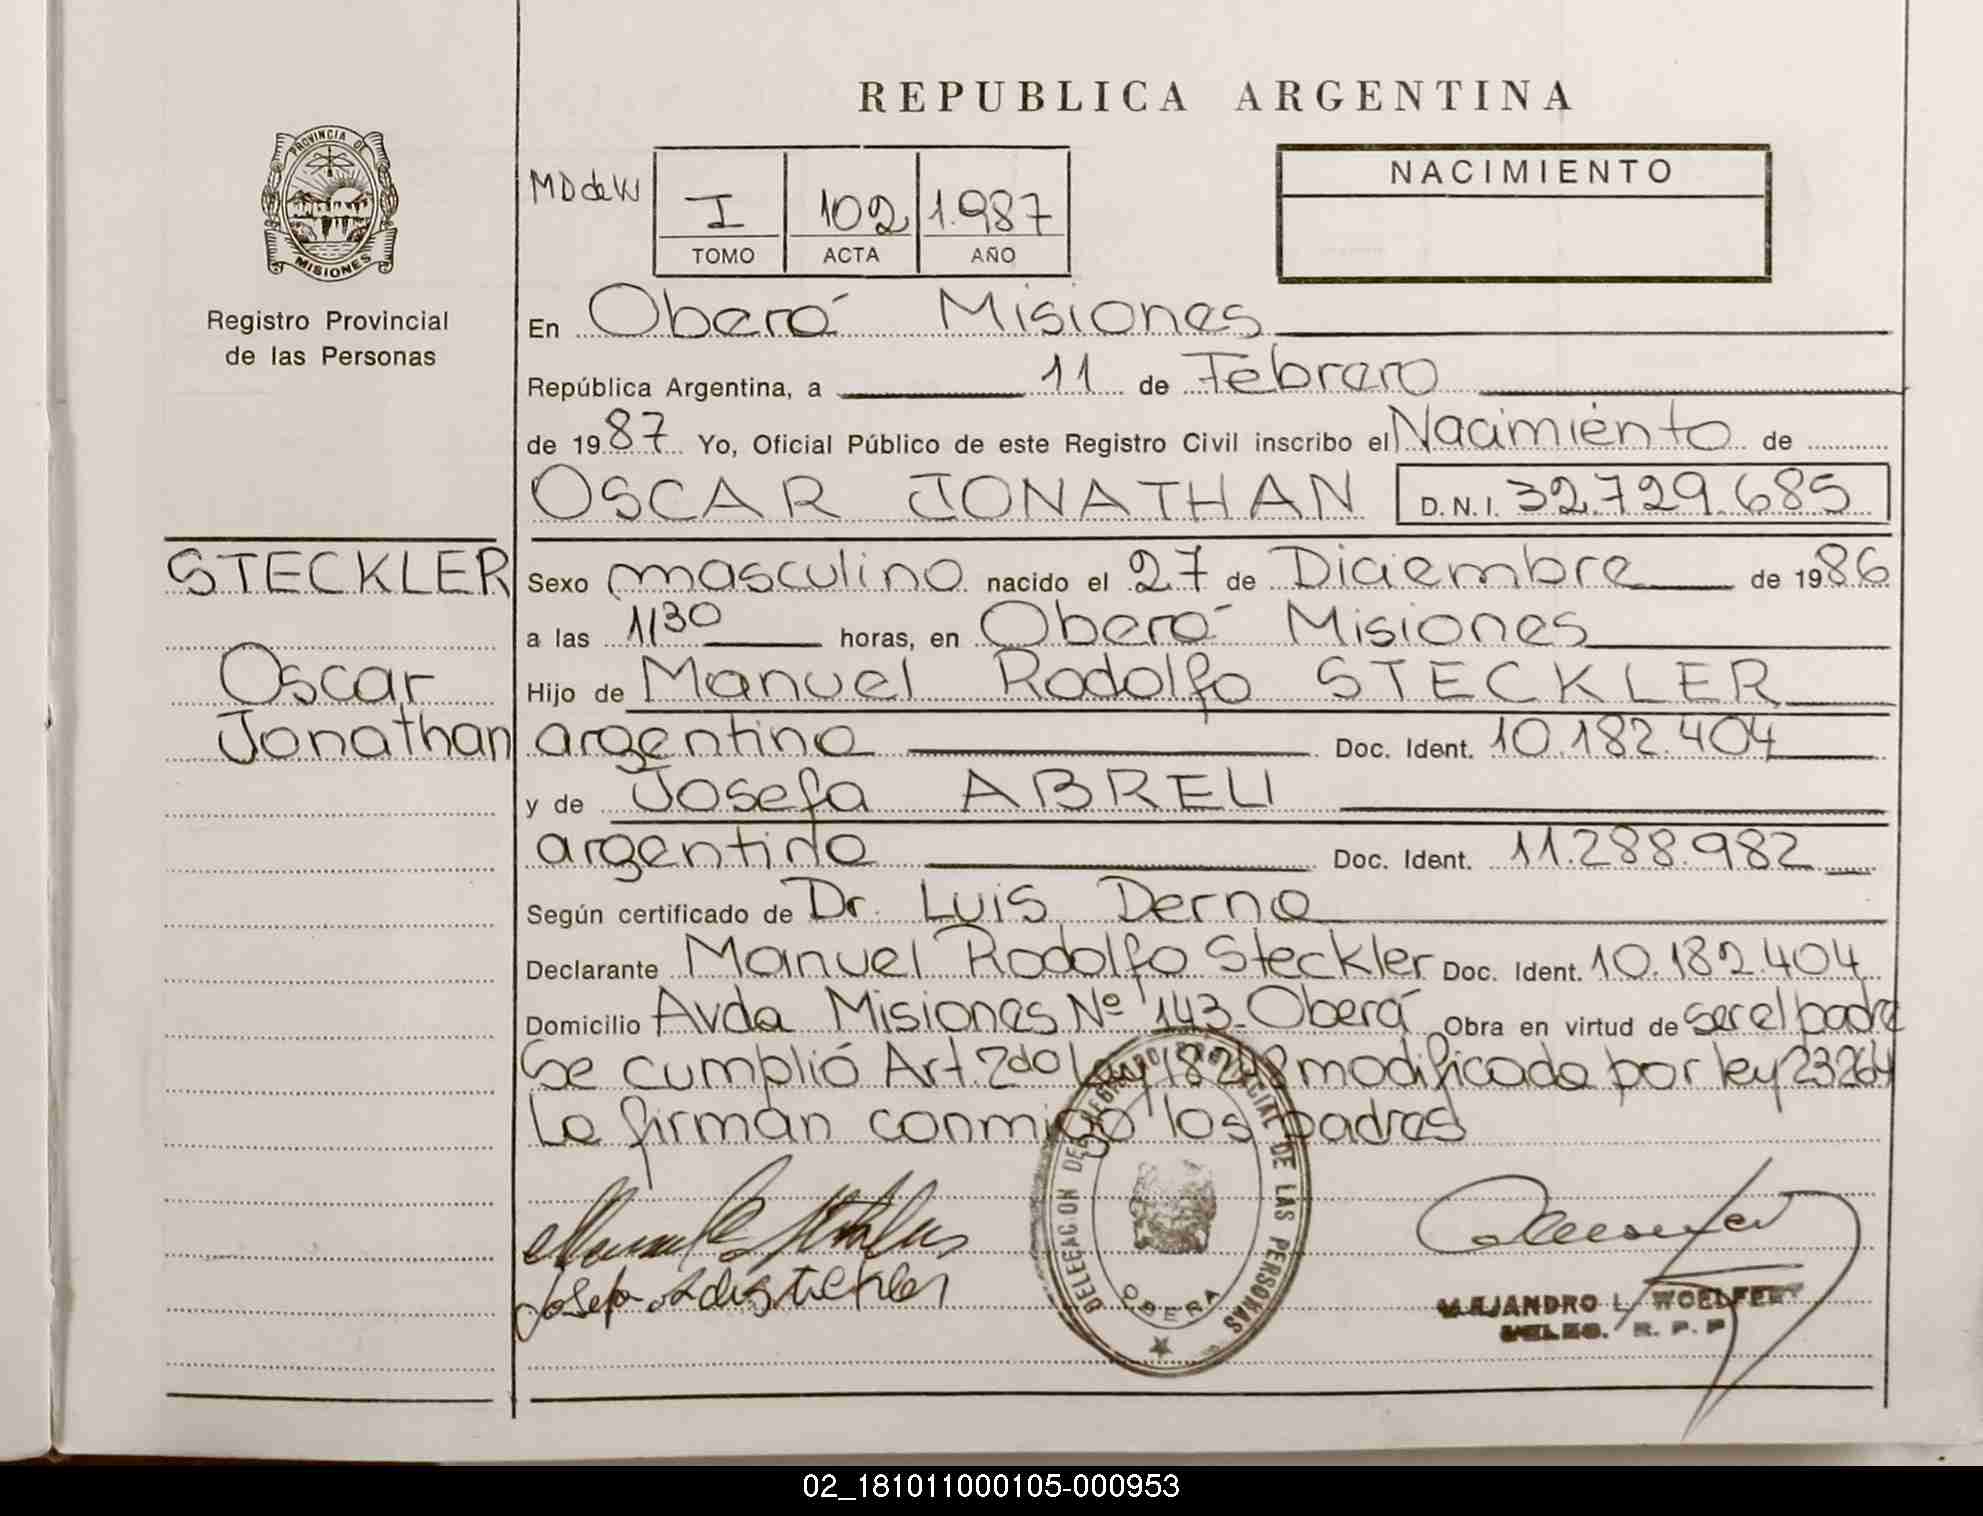 REPUBLICA ARGENTINA
PROVINCIA DE
MISIONES
Registro Provincial
de las Personas
MD de W
I 102 1.987
TOMO ACTA AÑO
NACIMIENTO
En Oberá Misiones
República Argentina, a 11 de Febrero
de 1987 Yo, Oficial Público de este Registro Civil inscribo el Nacimiento de
OSCAR JONATHAN D.N.I. 32.729.685
STECKLER
Oscar
Jonathan
Sexo masculino nacido el 27 de Diciembre de 1986
a las 1/30 horas, en Oberá Misiones
Hijo de Manuel Rodolfo STECKLER
argentino Doc. Ident. 10.182.404
y de Josefa ABREU
argentina Doc. Ident. 11.288.982
Según certificado de Dr. Luis Derna
Declarante Manuel Rodolfo Steckler Doc. Ident. 10.182.404
Domicilio Avda Misiones Nº 143-Oberá Obra en virtud de ser el padre
Se cumplió Art. 2do Ley 18248 modificada por ley 23264
La firman conmigo los padres
DELEGACION DEL REGISTRO PROVINCIAL DE LAS PERSONAS
OBERA
ALEJANDRO L. WOELFERT
DELEG. R. P. P
02_181011000105-000953